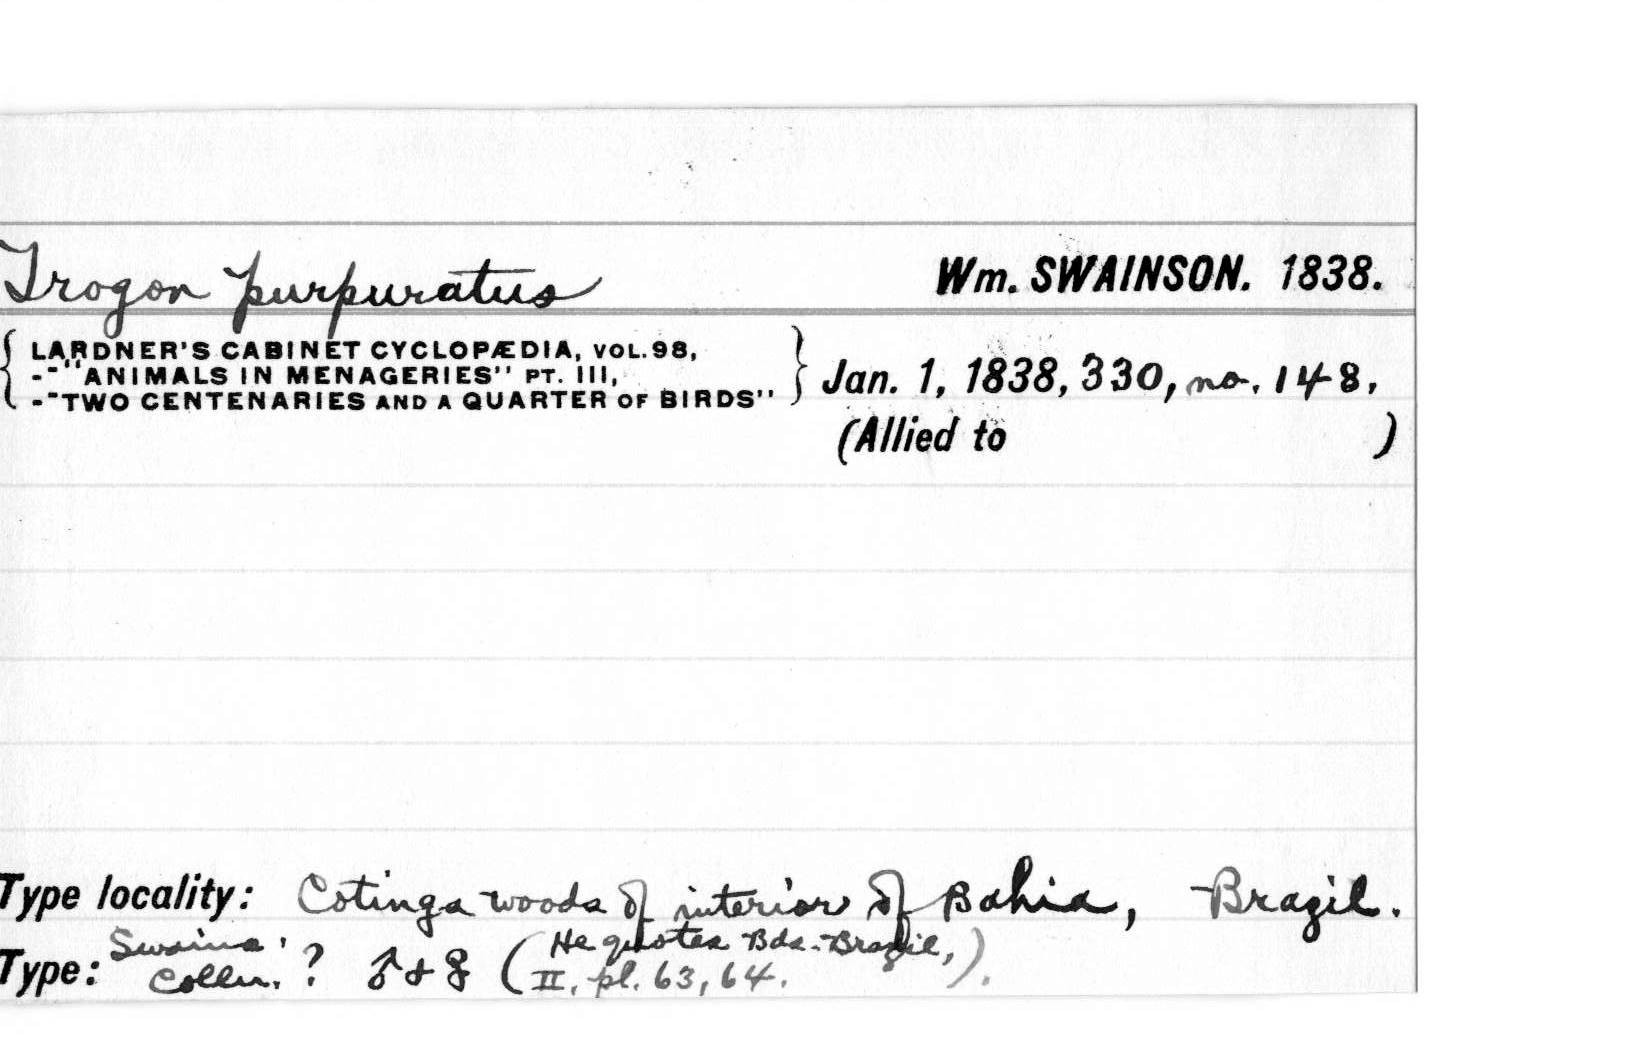 Trogon purpuratus Wm. SWAINSON. 1838.
{ LARDNER'S CABINET CYCLOPÆDIA, VOL. 98,
--"ANIMALS IN MENAGERIES" PT. III,
--"TWO CENTENARIES AND A QUARTER OF BIRDS" } Jan. 1, 1838, 330, no. 148.
(Allied to )
Type locality: Cotinga woods of interior of Bahia, Brazil.
Type: Swains' Colln. ? ♂ + ♀ (He quotes Bds. Brazil, II, pl. 63, 64.).